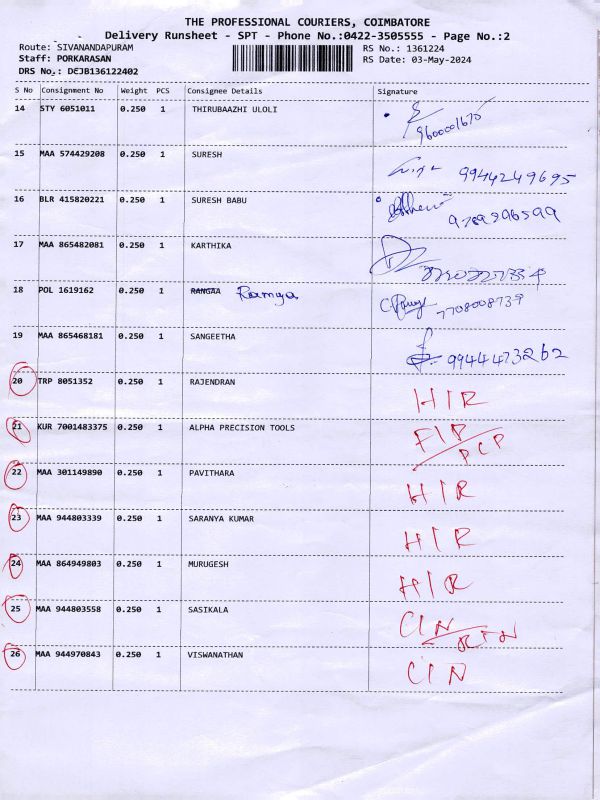 THE PROFESSIONAL COURIERS, COIMBATORE
Delivery Runsheet - SPT - Phone No.:0422-3505555 - Page No.:2
Route: SIVANANDAPURAM RS No.: 1361224
Staff: PORKARASAN RS Date: 03-May-2024
DRS No.: DEJB136122402
S No Consignment No Weight PCS Consignee Details Signature
14 STY 6051011 0.250 1 THIRUBAAZHI ULOLI
9600001675
15 MAA 574429208 0.250 1 SURESH
9944249695
16 BLR 415820221 0.250 1 SURESH BABU
9789596599
17 MAA 865482081 0.250 1 KARTHIKA
18 POL 1619162 0.250 1 RANGAA Ramya
7708008739
19 MAA 865468181 0.250 1 SANGEETHA
9944473262
20 TRP 8051352 0.250 1 RAJENDRAN
HIR
21 KUR 7001483375 0.250 1 ALPHA PRECISION TOOLS
PCP
22 MAA 301149890 0.250 1 PAVITHARA
HIR
23 MAA 944803339 0.250 1 SARANYA KUMAR
HIR
24 MAA 864949803 0.250 1 MURUGESH
HIR
25 MAA 944803558 0.250 1 SASIKALA
CIN
26 MAA 944970843 0.250 1 VISWANATHAN
CIN